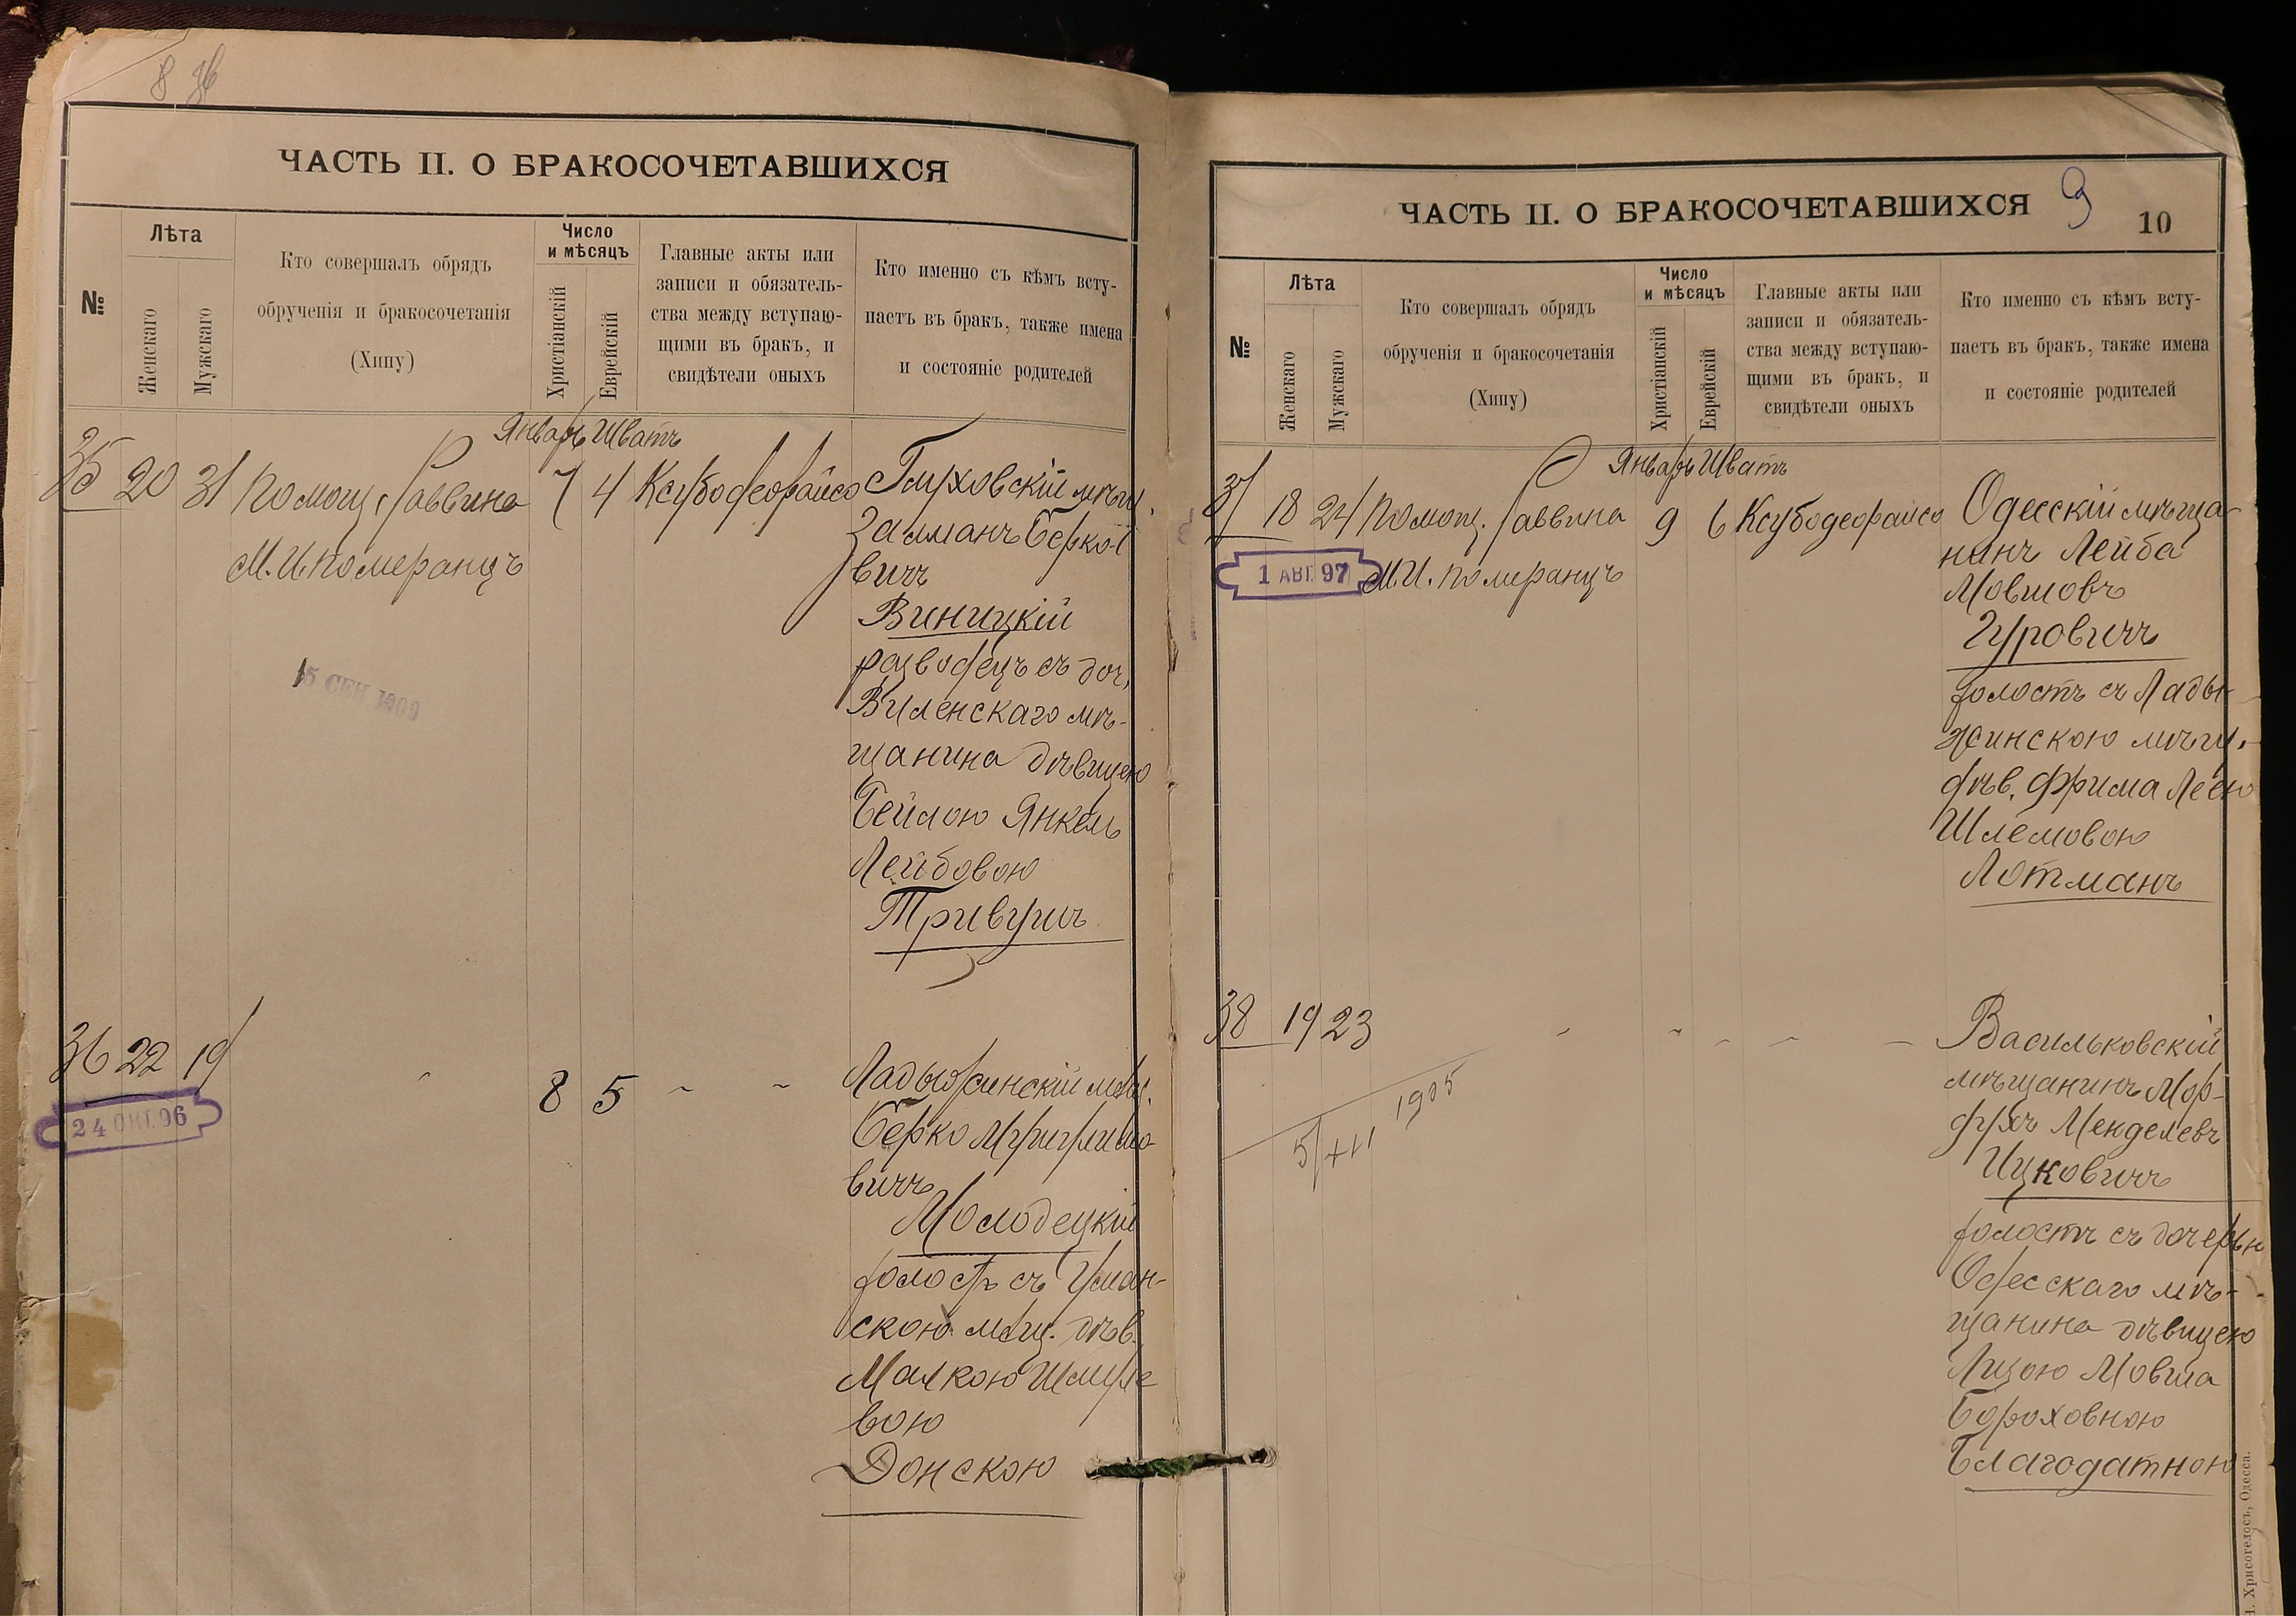 8
ЧАСТЬ II. О БРАКОСОЧЕТАВШИХСЯ
№
Лѣта
Женскаго
Мужскаго
Кто совершалъ обрядъ
обрученія и бракосочетанія
(Хипу)
Число
и мѣсяцъ
Христіанскій
Еврейскій
Главные акты или
записи и обязатель-
ства между вступаю-
щими въ бракъ, и
свидѣтели оныхъ
Кто именно съ кѣмъ всту-
паетъ въ бракъ, также имена
и состояніе родителей
Январь Шватъ
35 20 31 Помощ. Раввина 7 4 Ксубодеорайсо
М. И. Померанцъ
15 СЕН 1909
Глуховскій мѣщ.
Залманъ Берко-
вичъ
Виницкій
разводецъ съ доч.
Виленскаго мѣ-
щанина дѣвицею
Бейлою Янкель
Лейбовою
Тривушъ
36 22 19 8 5
24 ОКТ. 96
Ладыжинскій мѣщ.
Берко
вичъ
Молодецкій
холостъ съ Уман-
скою мѣщ. дѣв.
Малкою Шмуле
вою
Донскою
ЧАСТЬ II. О БРАКОСОЧЕТАВШИХСЯ
9
10
№
Лѣта
Женскаго
Мужскаго
Кто совершалъ обрядъ
обрученія и бракосочетанія
(Хипу)
Число
и мѣсяцъ
Христіанскій
Еврейскій
Главные акты или
записи и обязатель-
ства между вступаю-
щими въ бракъ, и
свидѣтели оныхъ
Кто именно съ кѣмъ всту-
паетъ въ бракъ, также имена
и состояніе родителей
Январь Шватъ
37 18 24 Помощ. Раввина 9 6 Ксубодеорайсо
1 АВГ. 97
М. И. Померанцъ
Одесскій мѣща-
нинъ Лейба
Мовшовъ
Гуровичъ
холостъ съ Лады-
жинскою мѣщ.
дѣв. Фрима Леею
Шлемовою
Лотманъ
38 19 23
5/XII 1905
Васильковскій
мѣщанинъ Мор-
духъ Менделевъ
Ицковичъ
холостъ съ дочерью
Одесскаго мѣ-
щанина дѣвицею
Лизою Мовша
Бороховною
Благодатною
Хрисогелосъ, Одесса.